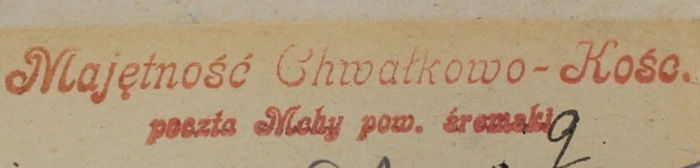 Majętność Chwałkowo-Kośc.
poczta Mchy pow. śremski